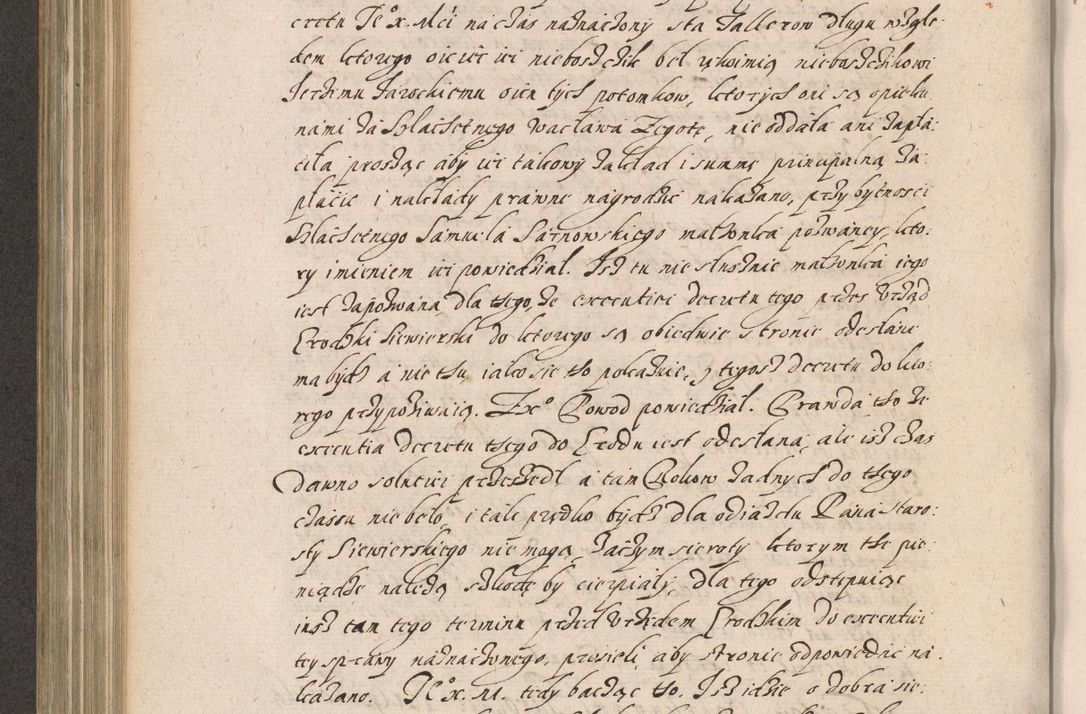 cretu Je° x. Mći na cżas naznacżony sta Tallerow długu wzglę:
dem ktorego oiciec iei nieboszcżik beł rękoimią nieboszcżikowi
Jerzimu Jarockiemu oicu tych potomkow, ktorych oni są opieku
nami za Szlachetnego Wacława Zegotę, nie oddała ani zapła:
ciła prosząc aby iei takowy zakład i summę principalną za:
płacic i nakłady prawne nagrodzic nakazano, przy bytnosci
Szlachetnego Samuela Sarnowskiego małżonka pozwaney, kto:
ry imieniem iei powiedział. Isz tu niesłusznie małżonka iego
iest zapozwana dla tego, że executiei decretu tego przes Vrząd
Grodzki Siewierski do ktorego są obiedwie stronie odesłane
ma bydź a nie tu, iako się to pokazuie, z tegosz decretu do kto:
rego przypoziwaią. Ex° Powod powiedział. Prawda to że
executia decretu tego do Grodu iest odesłana, ale isz cżas
dawno solucioi przeszedł a tam Rokow żadnych do tego
cżassu nie beło, i tak prędko bydź dla odiazdu Pana Staro:
sty Siewierskiego nie mogą, zacżym sieroty ktorym te pie:
niądze należą szkodę by cierpiały, dla tego odstępuiąc
insz tam tego terminu przed Vrzędem Grodzkim do executiei
tey sprawy naznacżonego, prosieli, aby stronie odpowiedzic na:
kazano. Je° x. M. tedy bacżąc to. Isz idzie o dobra sie: